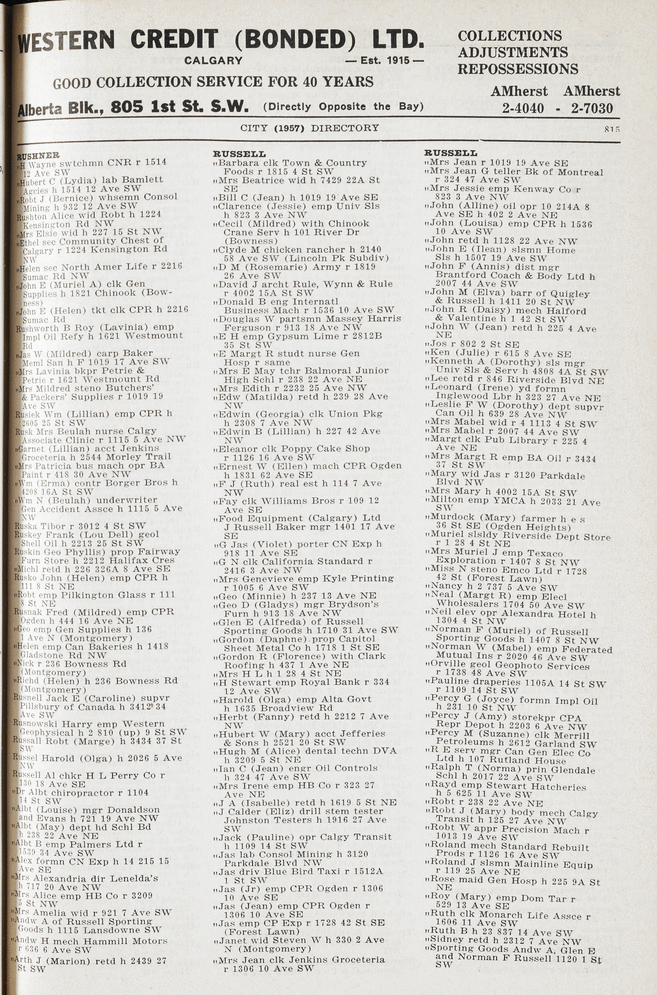 WESTERN CREDIT (BONDED) LTD.
CALGARY — Est. 1915 —
GOOD COLLECTION SERVICE FOR 40 YEARS
Alberta Blk., 805 1st St. S.W. (Directly Opposite the Bay)
COLLECTIONS
ADJUSTMENTS
REPOSSESSIONS
AMherst AMherst
2-4040 - 2-7030
CITY (1957) DIRECTORY 815
RUSHNER
„H Wayne swtchmn CNR r 1514
12 Ave SW
„Hubert C (Lydia) lab Bamlett
Agcies h 1514 12 Ave SW
„Robt J (Bernice) whsemn Consol
Mining h 932 12 Ave SW
Rushton Alice wid Robt h 1224
Kensington Rd NW
„Mrs Elsie wid h 227 15 St NW
„Ethel sec Community Chest of
Calgary r 1224 Kensington Rd
NW
„Helen sec North Amer Life r 2216
Sumac Rd NW
„John E (Muriel A) clk Gen
Supplies h 1821 Chinook (Bow-
ness)
„John E (Helen) tkt clk CPR h 2216
Sumac Rd
Rushworth B Roy (Lavinia) emp
Impl Oil Refy h 1621 Westmount
Rd
„Jas W (Mildred) carp Baker
Meml San h F 1019 17 Ave SW
„Mrs Lavinia bkpr Petrie &
Petrie r 1621 Westmount Rd
„Mrs Mildred steno Butchers'
& Packers' Supplies r 1019 19
Ave SW
Rusiek Wm (Lillian) emp CPR h
2605 25 St SW
Rusk Mrs Beulah nurse Calgy
Associate Clinic r 1115 5 Ave NW
„Garnet (Lillian) acct Jenkins
Groceteria h 2544 Morley Trail
„Mrs Patricia bus mach opr BA
Paint r 418 30 Ave NW
„Wm (Erma) contr Borger Bros h
4208 16A St SW
„Wm N (Beulah) underwriter
Gen Accident Assce h 1115 5 Ave
NW
Ruska Tibor r 3012 4 St SW
Ruskey Frank (Lou Dell) geol
Shell Oil h 2213 25 St SW
Ruskin Geo Phyllis) prop Fairway
Furn Store h 2212 Halifax Cres
„Michl retd h 226 326A 8 Ave SE
Rusko John (Helen) emp CPR h
111 8 St NE
„Robt emp Pilkington Glass r 111
8 St NE
Rusnak Fred (Mildred) emp CPR
Ogden h 444 16 Ave NE
„Geo emp Gen Supplies h 136
1 Ave N (Montgomery)
„Helen emp Can Bakeries h 1418
Gladstone Rd NW
„Nick r 236 Bowness Rd
(Montgomery)
„Richd (Helen) h 236 Bowness Rd
(Montgomery)
Rusnell Jack E (Caroline) supvr
Pillsbury of Canada h 3412 34
Ave SW
Rusnowski Harry emp Western
Geophysical h 2 810 (up) 9 St SW
Russall Robt (Marge) h 3434 37 St
SW
Russel Harold (Olga) h 2026 5 Ave
NW
Russell Al chkr H L Perry Co r
130 18 Ave SE
„Dr Albt chiropractor r 1104
14 St SW
„Albt (Louise) mgr Donaldson
and Evans h 721 19 Ave NW
„Albt (May) dept hd Schl Bd
h 238 22 Ave NE
„Albt B emp Palmers Ltd r
1539 34 Ave SW
„Alex formn CN Exp h 14 215 15
Ave SE
„Mrs Alexandria dir Lenelda's
h 717 20 Ave NW
„Mrs Alice emp HB Co r 3209
5 St NW
„Mrs Amelia wid r 921 7 Ave SW
„Andw A of Russell Sporting
Goods h 1115 Lansdowne SW
„Andw H mech Hammill Motors
r 636 6 Ave SW
„Arth J (Marion) retd h 2439 27
St SW
RUSSELL
„Barbara clk Town & Country
Foods r 1815 4 St SW
„Mrs Beatrice wid h 7429 22A St
SE
„Bill C (Jean) h 1019 19 Ave SE
„Clarence (Jessie) emp Univ Sls
h 823 3 Ave NW
„Cecil (Mildred) with Chinook
Crane Serv h 101 River Dr
(Bowness)
„Clyde M chicken rancher h 2140
58 Ave SW (Lincoln Pk Subdiv)
„D M (Rosemarie) Army r 1819
26 Ave SW
„David J archt Rule, Wynn & Rule
r 4002 15A St SW
„Donald B eng Internatl
Business Mach r 1536 10 Ave SW
„Douglas W partsmn Massey Harris
Ferguson r 913 18 Ave NW
„E H emp Gypsum Lime r 2812B
35 St SW
„E Margt R studt nurse Gen
Hosp r same
„Mrs E May tchr Balmoral Junior
High Schl r 238 22 Ave NE
„Mrs Edith r 2232 25 Ave NW
„Edw (Matilda) retd h 239 28 Ave
NW
„Edwin (Georgia) clk Union Pkg
h 2308 7 Ave NW
„Edwin B (Lillian) h 227 42 Ave
NW
„Eleanor clk Poppy Cake Shop
r 1126 16 Ave SW
„Ernest W (Ellen) mach CPR Ogden
h 1831 62 Ave SE
„F J (Ruth) real est h 114 7 Ave
NW
„Fay clk Williams Bros r 109 12
Ave SE
„Food Equipment (Calgary) Ltd
J Russell Baker mgr 1401 17 Ave
SE
„G Jas (Violet) porter CN Exp h
918 11 Ave SE
„G N clk California Standard r
2416 3 Ave NW
„Mrs Genevieve emp Kyle Printing
r 1005 6 Ave SW
„Geo (Minnie) h 237 13 Ave NE
„Geo D (Gladys) mgr Brydson's
Furn h 913 18 Ave NW
„Glen E (Alfreda) of Russell
Sporting Goods h 1710 31 Ave SW
„Gordon (Daphne) prop Capitol
Sheet Metal Co h 1718 1 St SE
„Gordon R (Florence) with Clark
Roofing h 437 1 Ave NE
„Mrs H L h 1 28 4 St NE
„H Stewart emp Royal Bank r 334
12 Ave SW
„Harold (Olga) emp Alta Govt
h 1635 Broadview Rd
„Herbt (Fanny) retd h 2212 7 Ave
NW
„Hubert W (Mary) acct Jefferies
& Sons h 2521 20 St SW
„Hugh M (Alice) dental techn DVA
h 3209 5 St NE
„Ian C (Jean) engr Oil Controls
h 324 47 Ave SW
„Mrs Irene emp HB Co r 323 27
Ave NE
„J A (Isabelle) retd h 1619 5 St NE
„J Calder (Eliz) drill stem tester
Johnston Testers h 1916 27 Ave
SW
„Jack (Pauline) opr Calgy Transit
h 1109 14 St SW
„Jas lab Consol Mining h 3120
Parkdale Blvd NW
„Jas driv Blue Bird Taxi r 1512A
1 St SW
„Jas (Jr) emp CPR Ogden r 1306
10 Ave SE
„Jas (Jean) emp CPR Ogden r
1306 10 Ave SE
„Jas emp CP Exp r 1728 42 St SE
(Forest Lawn)
„Janet wid Steven W h 330 2 Ave
N (Montgomery)
„Mrs Jean clk Jenkins Groceteria
r 1306 10 Ave SW
RUSSELL
„Mrs Jean r 1019 19 Ave SE
„Mrs Jean G teller Bk of Montreal
r 324 47 Ave SW
„Mrs Jessie emp Kenway Co r
823 3 Ave NW
„John (Alline) oil opr 10 214A 8
Ave SE h 402 2 Ave NE
„John (Louisa) emp CPR h 1536
10 Ave SW
„John retd h 1128 22 Ave NW
„John E (Ilean) slsmn Home
Sls h 1507 19 Ave SW
„John F (Annis) dist mgr
Brantford Coach & Body Ltd h
2007 44 Ave SW
„John M (Elva) barr of Quigley
& Russell h 1411 20 St NW
„John R (Daisy) mech Halford
& Valentine h 1 42 St SW
„John W (Jean) retd h 225 4 Ave
NE
„Jos r 802 2 St SE
„Ken (Julie) r 615 8 Ave SE
„Kenneth A (Dorothy) sls mgr
Univ Sls & Serv h 4808 4A St SW
„Lee retd r 846 Riverside Blvd NE
„Leonard (Irene) yd formn
Inglewood Lbr h 323 27 Ave NE
„Leslie F W (Dorothy) dept supvr
Can Oil h 639 28 Ave NW
„Mrs Mabel wid r 4 1113 4 St SW
„Mrs Mabel r 2007 44 Ave SW
„Margt clk Pub Library r 225 4
Ave NE
„Mrs Margt R emp BA Oil r 3434
37 St SW
„Mary wid Jas r 3120 Parkdale
Blvd NW
„Mrs Mary h 4002 15A St SW
„Milton emp YMCA h 2033 21 Ave
SW
„Murdock (Mary) farmer h e s
36 St SE (Ogden Heights)
„Muriel slsldy Riverside Dept Store
r 1 28 4 St NE
„Mrs Muriel J emp Texaco
Exploration r 1407 8 St NW
„Miss N steno Emco Ltd r 1728
42 St (Forest Lawn)
„Nancy h 2 737 5 Ave SW
„Neal (Margt R) emp Elecl
Wholesalers 1704 50 Ave SW
„Neil elev opr Alexandra Hotel h
1304 4 St NW
„Norman F (Muriel) of Russell
Sporting Goods h 1407 8 St NW
„Norman W (Mabel) emp Federated
Mutual Ins r 2020 46 Ave SW
„Orville geol Geophoto Services
r 1738 48 Ave SW
„Pauline draperies 1105A 14 St SW
r 1109 14 St SW
„Percy G (Joyce) formn Impl Oil
h 231 10 St NW
„Percy J (Amy) storekpr CPA
Repr Depot h 2203 6 Ave NW
„Percy M (Suzanne) clk Merrill
Petroleums h 2612 Garland SW
„R E serv mgr Can Gen Elec Co
Ltd h 107 Rutland House
„Ralph T (Norma) prin Glendale
Schl h 2017 22 Ave SW
„Rayd emp Stewart Hatcheries
h 5 625 11 Ave SW
„Robt r 238 22 Ave NE
„Robt J (Mary) body mech Calgy
Transit h 125 27 Ave NW
„Robt W appr Precision Mach r
1013 19 Ave SW
„Roland mech Standard Rebuilt
Prods r 1126 16 Ave SW
„Roland J slsmn Mainline Equip
r 119 25 Ave NE
„Rose maid Gen Hosp h 225 9A St
NE
„Roy (Mary) emp Dom Tar r
529 13 Ave SE
„Ruth clk Monarch Life Assce r
1606 11 Ave SW
„Ruth B h 23 837 14 Ave SW
„Sidney retd h 2312 7 Ave NW
„Sporting Goods Andw A, Glen E
and Norman F Russell 1120 1 St
SW